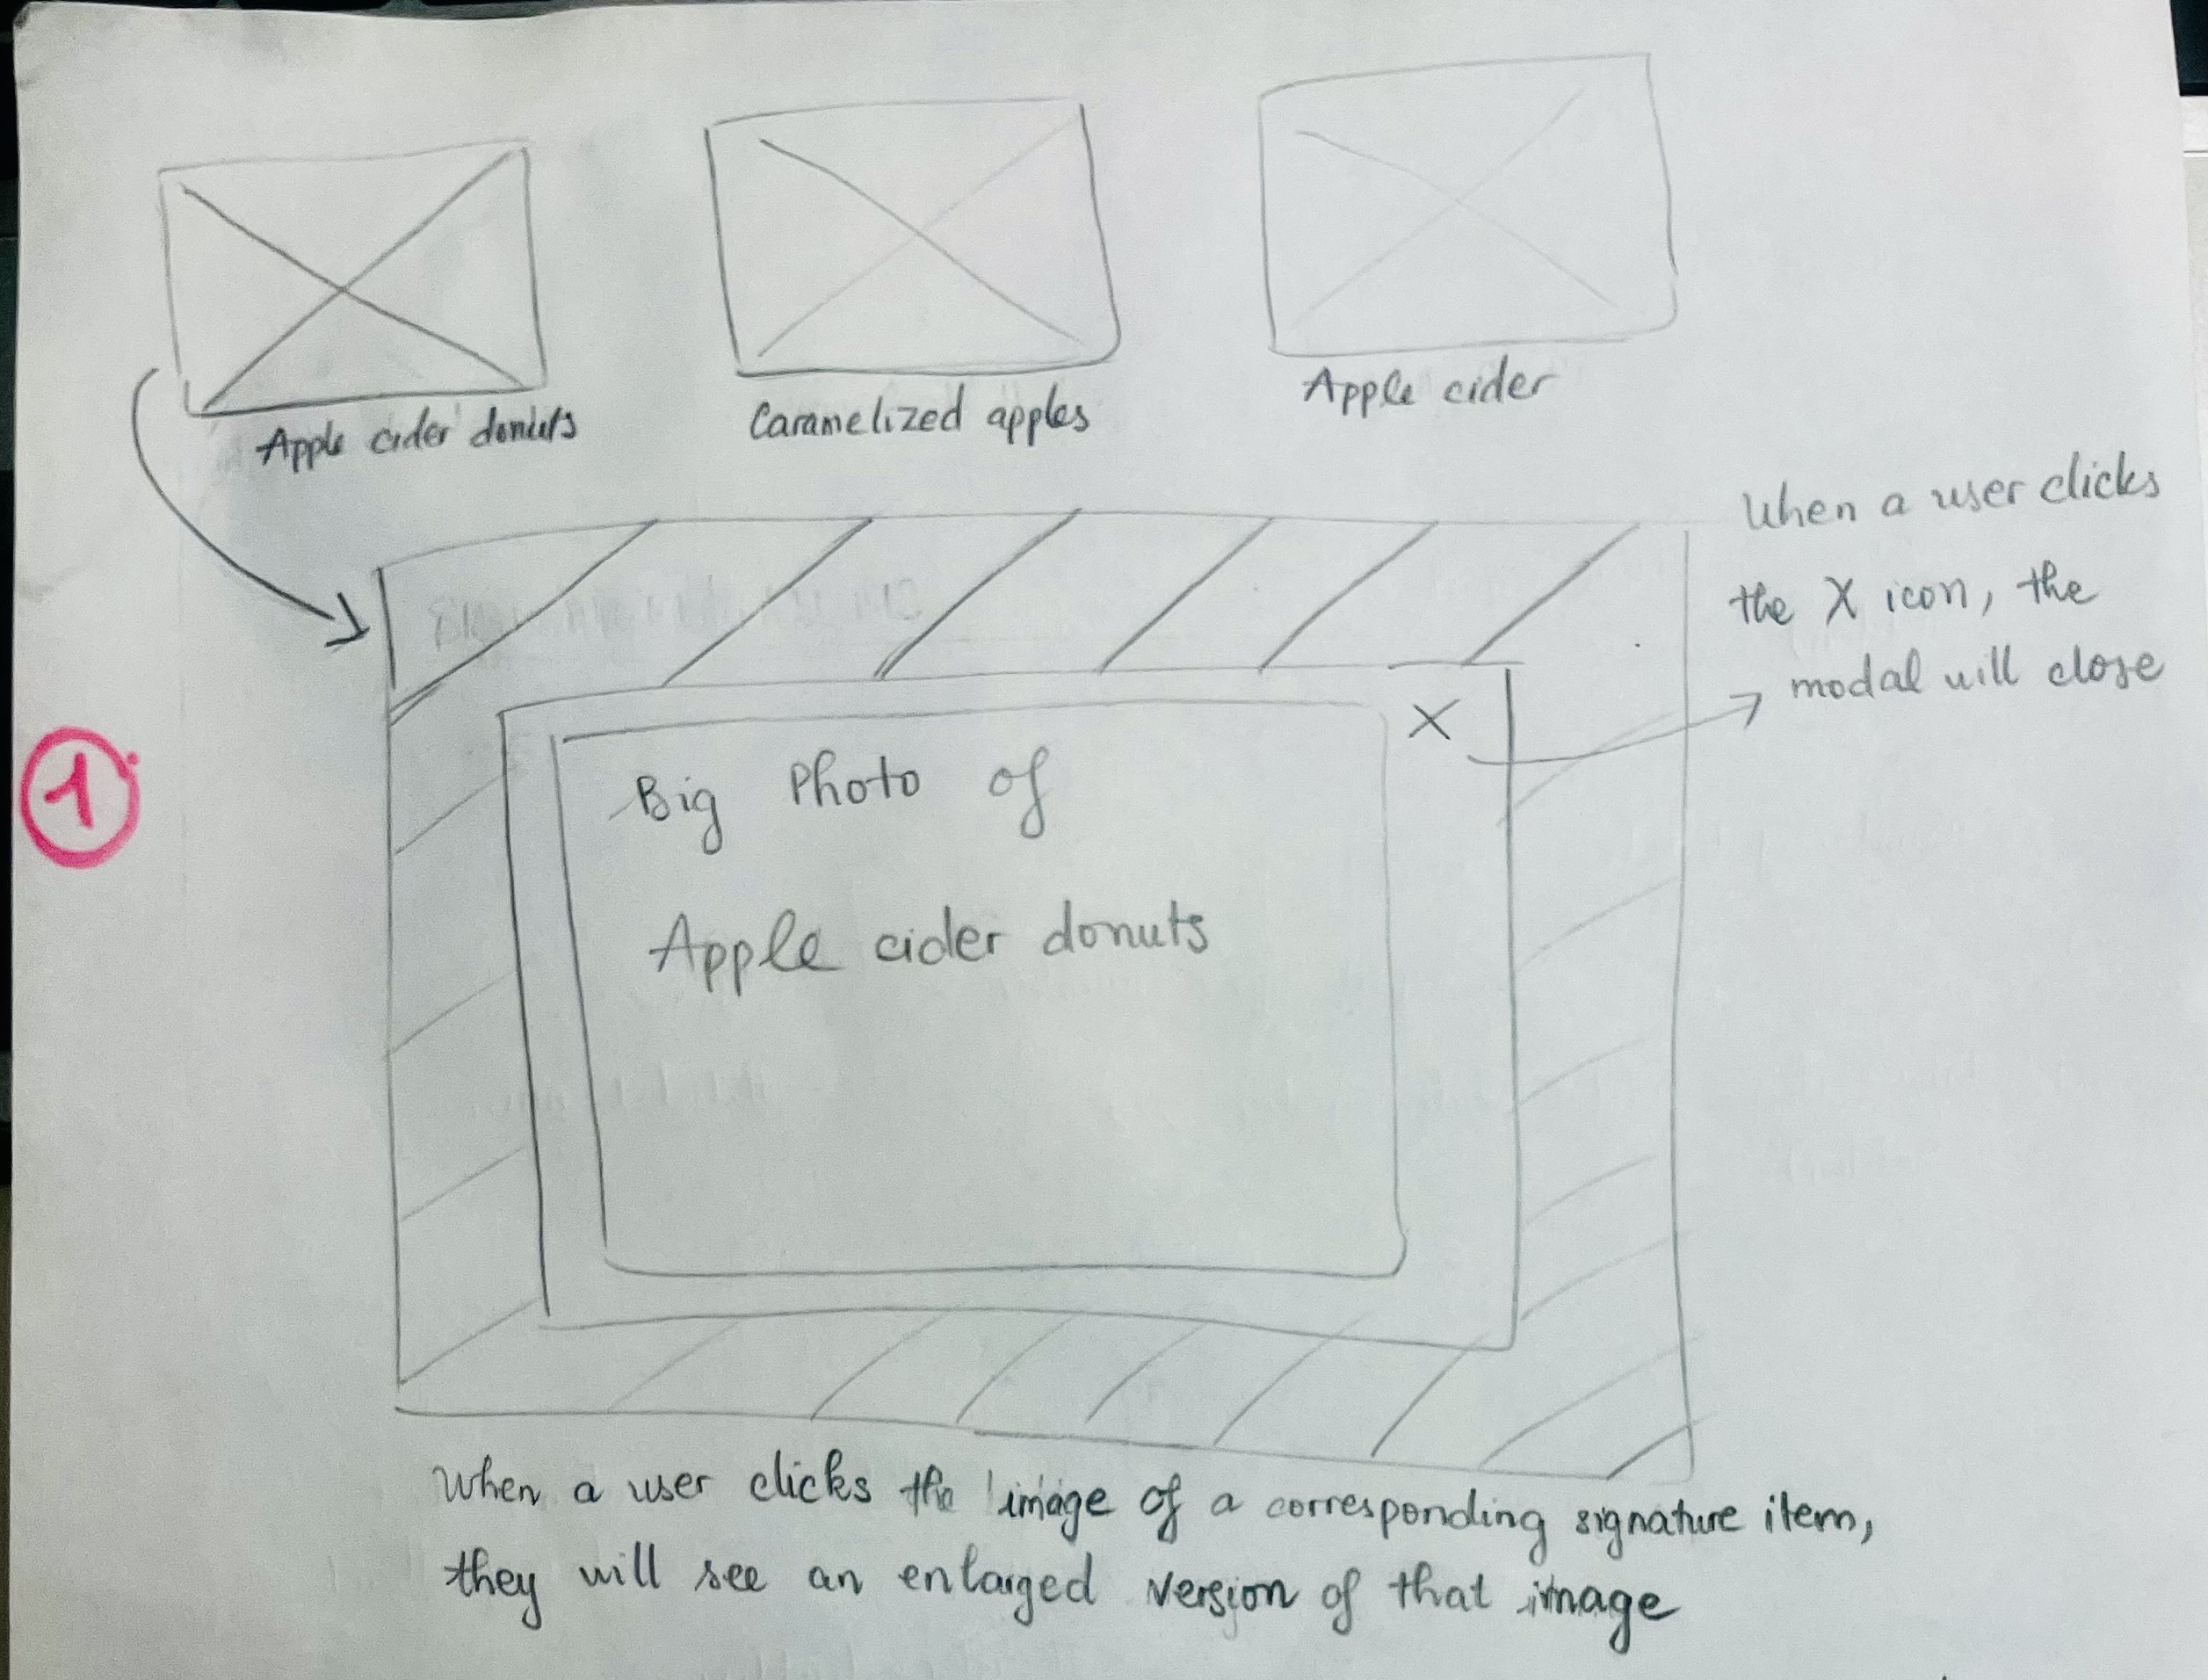 Apple cider donuts
Caramelized apples
Apple cider
When a user clicks
the X icon, the
modal will close
X
1
Big Photo of
Apple cider donuts
When a user clicks the image of a corresponding signature item,
they will see an enlarged version of that image